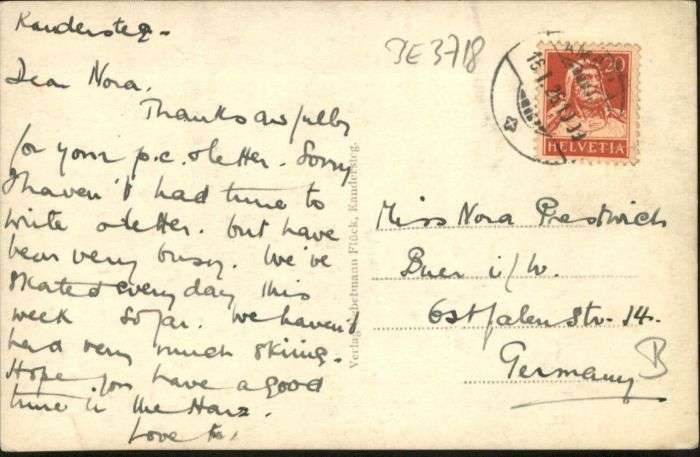 Kandersteg-
Dear Nora.
Thanks awfully
for your p.c. & letter. Sorry
I haven't had time to
write a letter. but have
been very busy. We've
skated every day this
week so far. We haven't
had very much skiing.
Hope you have a good
time in the Harz.
Love
JE3718
20
HELVETIA
Verlag Flück, Kandersteg.
Miss Nora Prestwich
Buer i/W.
Ostfalen Str. 14.
Germany
B